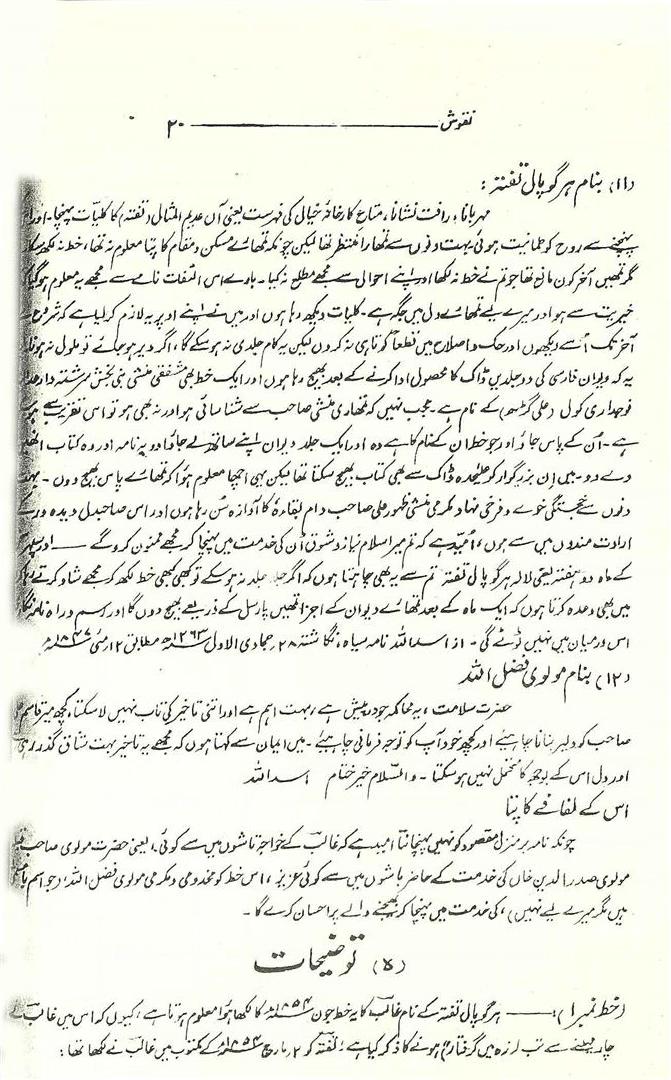 نقوش ــــــــــــ ۲۰
(۱۱) بنام ہرگوپال تفتہ :
مہربانا، رافت نشانا، متاعِ کارخانۂ خیالی کی فہرست یعنی آں عدیم المثال (تفتہ) کا کلیات پہنچا۔ اور اس
پہنچنے سے روح کو طمانیت ہوئی۔ بہت دنوں سے تمھارا منتظر تھا لیکن چونکہ تمھارے مسکن و مقام کا پتا معلوم نہ تھا، خط نہ لکھ سکا
مگر تمھیں آخر کون مانع تھا جو تم نے خط نہ لکھا اور اپنے احوال سے مجھے مطلع نہ کیا۔ بارے اس التفات نامے سے مجھے یہ معلوم ہو گیا
خیریت سے ہو اور میرے لیے تمھارے دل میں جگہ ہے۔ کلیات دیکھ رہا ہوں اور میں نے اپنے اوپر یہ لازم کر لیا ہے کہ شروع سے
آخر تک اُسے دیکھوں اور حک و اصلاح میں قطعاً کوتاہی نہ کروں لیکن یہ کام جلدی نہ ہو سکے گا، اگر دیر ہو جائے تو ملول نہ ہونا
یہ کہ دیوان فارسی کی دو جلدیں ڈاک کا محصول ادا کرنے کے بعد بھیج رہا ہوں اور ایک خط بھی مشفقی منشی نبی بخش سر رشتہ دار
فوجداری کول (علی گڑھ) کے نام ہے۔ عجب نہیں کہ تمھاری منشی صاحب سے شناسائی ہو اور نہ بھی ہو تو اس تقریب سے
ہے۔ اُن کے پاس جاؤ اور جو خط ان کے نام کا ہے وہ اور ایک جلد دیوان اپنے ساتھ لے جاؤ اور یہ نامہ اور وہ کتاب انھیں
دے دو۔ میں اِن بزرگوار کو علیٰحدہ ڈاک سے بھی کتاب بھیج سکتا تھا لیکن یہی اچھا معلوم ہوا کہ تمھارے پاس بھیج دوں۔ بہت
دنوں سے خجستگی خوے و فرخی نہاد مکرمی منشی ظہور علی صاحب دام بقاءہٗ کا آوازہ سُن رہا ہوں اور اس صاحبدل دیدہ ور کے
ارادت مندوں میں سے ہوں، اُمید ہے کہ تم میرا سلامِ نیاز و شوق اُن کی خدمت میں پہنچا کر مجھے ممنون کرو گے ــــــ اور سپہر
کے ماہِ دو ہفتہ یعنی لالہ ہرگوپال تفتہ تم سے یہ بھی چاہتا ہوں کہ اگر جلد جلد نہ ہو سکے تو کبھی کبھی خط لکھ کر مجھے شاد کرتے رہا کرو
میں بھی وعدہ کرتا ہوں کہ ایک ماہ کے بعد تمھارے دیوان کے اجزا تمھیں پارسل کے ذریعے بھیج دوں گا اور رسم و راہ نامہ نگاری
اس درمیان میں نہیں ٹوٹے گی۔ از اسد اللہ نامہ سیاہ، نگاشتہ ۲۸ جمادی الاول ۱۲۶۳ھ مطابق ۱۲ مئی ۱۸۴۷ء
(۱۲) بنام مولوی فضل اللہ
حضرت سلامت، یہ محاکمہ جو درپیش ہے، بہت اہم ہے اور اتنی تاخیر کی تاب نہیں لا سکتا، کچھ میر قاسم علی
صاحب کو دلیر بنانا چاہیے اور کچھ خود آپ کو توجہ فرمانی چاہیے۔ میں ایمان سے کہتا ہوں کہ مجھے یہ تاخیر بہت شاق گذر رہی
اور دل اس کے بوجھ کا متحمل نہیں ہو سکتا۔ والسلام خیر ختام اسد اللہ
اس کے لفافے کا پتا
چونکہ نامہ بر منزل مقصود کو نہیں پہچانتا امید ہے کہ غالب کے خواجہ تاشوں میں سے کوئی، یعنی حضرت مولوی صاحب قبلہ
مولوی صدر الدین خاں کی خدمت کے حاضر باشوں میں سے کوئی عزیز، اس خط کو مخدومی و مکرمی مولوی فضل اللہ (جو اسم با
ہیں مگر میرے لیے نہیں)، کی خدمت میں پہنچا کر بھیجنے والے پر احسان کرے گا۔
(۵) توضیحات
(خط نمبر ۱): ــــــ ہرگوپال تفتہ کے نام غالب کا یہ خط جون ۱۸۵۴ء کا لکھا ہوا معلوم ہوتا ہے، کیوں کہ اس میں غالب نے
چار مہینے سے تپ لرزہ میں گرفتار ہونے کا ذکر کیا ہے؛ تفتہ کو ۲ مارچ ۱۸۵۴ء کے مکتوب میں غالب نے لکھا تھا: